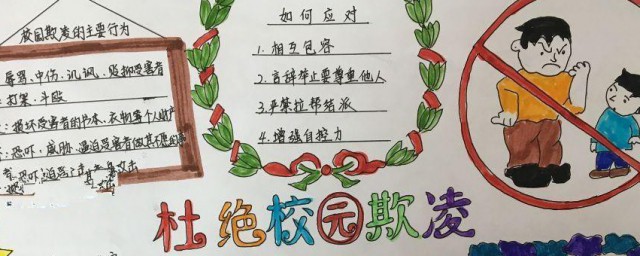 校园欺凌的主要行为
辱骂、中伤、讥讽、贬抑受害者
打架、斗殴
损坏受害者的书本、衣物等个人财产
恐吓、威胁、逼迫受害者做其不愿的
如何应对
1.相互包容
2.言辞举止要尊重他人
3.严禁拉帮结派
4.增强自控力
杜绝校园欺凌